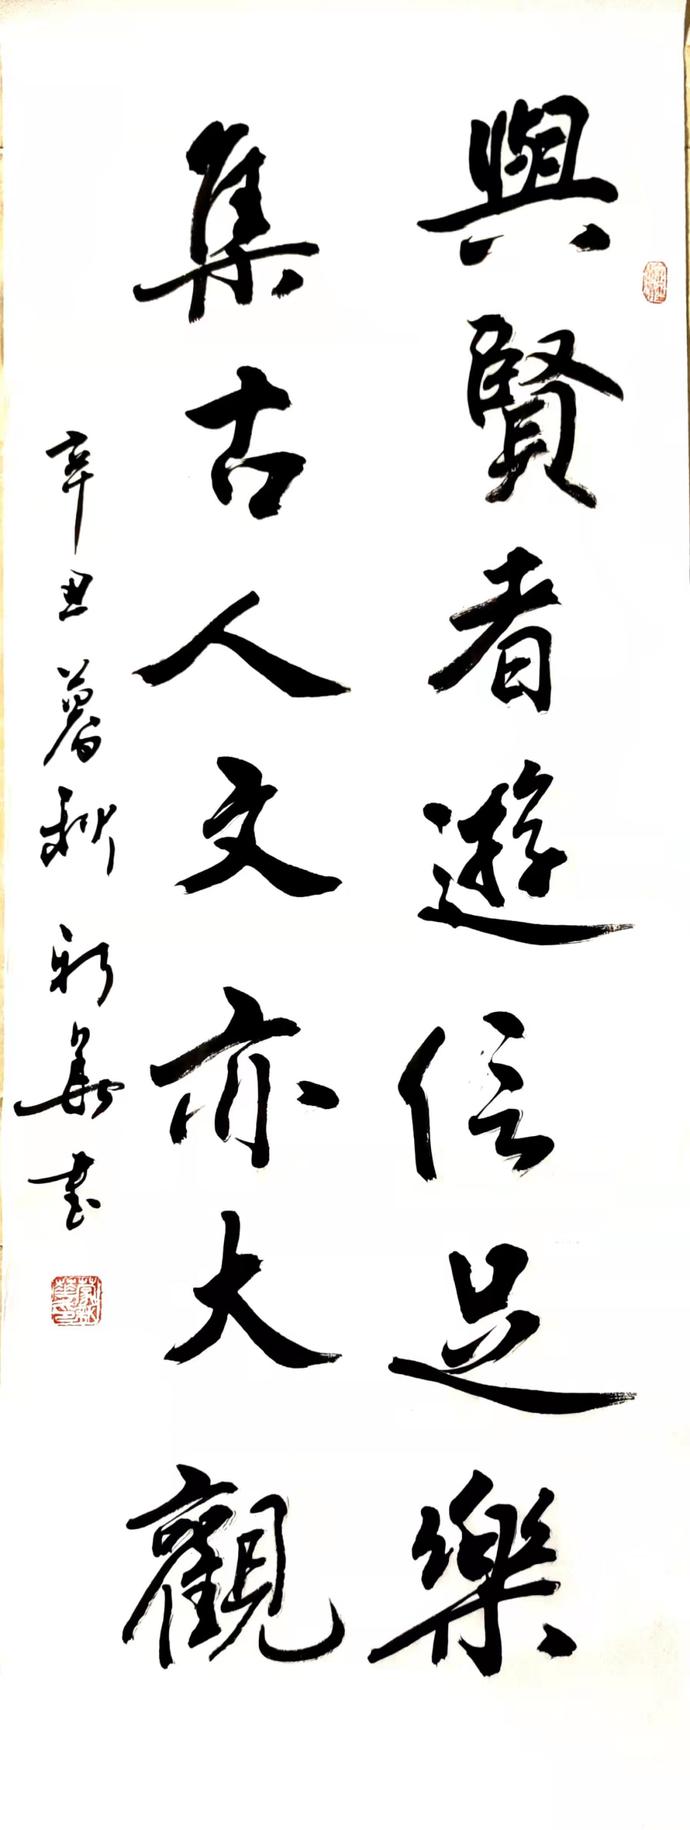 與賢者遊信足樂
集古人文亦大觀
辛丑暮秋新華書